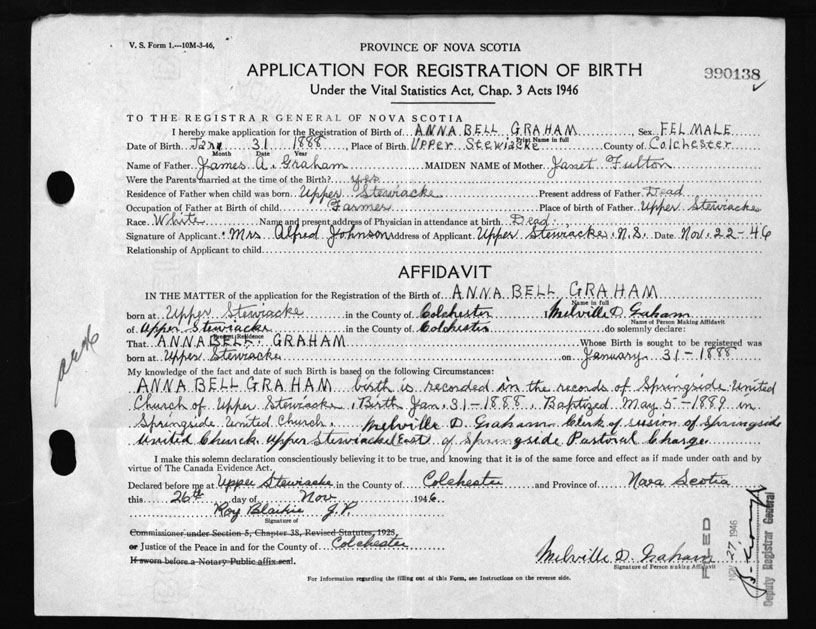 V. S. Form 1.---10M-3-46,
PROVINCE OF NOVA SCOTIA
APPLICATION FOR REGISTRATION OF BIRTH
Under the Vital Statistics Act, Chap. 3 Acts 1946
990138
TO THE REGISTRAR GENERAL OF NOVA SCOTIA
I hereby make application for the Registration of Birth of ANNA BELL GRAHAM Sex FELMALE
Print Name in full
Date of Birth Jan 31 1888 Place of Birth Upper Stewiacke County of Colchester
Month Date Year
Name of Father James A. Graham MAIDEN NAME of Mother Janet Fulton
Were the Parents married at the time of the Birth? yes
Residence of Father when child was born Upper Stewiacke Present address of Father Dead
Occupation of Father at Birth of child Farmer Place of birth of Father Upper Stewiacke
Race White Name and present address of Physician in attendance at birth Dead
Signature of Applicant Mrs Alfred Johnson Address of Applicant Upper Stewiacke, N.S. Date Nov. 22-46
Relationship of Applicant to child
AFFIDAVIT
IN THE MATTER of the application for the Registration of the Birth of ANNA BELL GRAHAM
Name in full
born at Upper Stewiacke in the County of Colchester Melville D. Graham
Name of Person Making Affidavit
of Upper Stewiacke in the County of Colchester do solemnly declare:
Present Residence
That ANNA BELL GRAHAM Whose Birth is sought to be registered was
born at Upper Stewiacke on January 31-1888
My knowledge of the fact and date of such Birth is based on the following Circumstances:
ANNA BELL GRAHAM birth is recorded in the records of Springside United
Church of Upper Stewiacke. Birth Jan. 31-1888. Baptized May 5-1889 in
Springside United Church. Melville D. Graham Clerk of session of Springside
United Church Upper Stewiacke East of Springside Pastoral Charge
I make this solemn declaration conscientiously believing it to be true, and knowing that it is of the same force and effect as if made under oath and by
virtue of The Canada Evidence Act.
Declared before me at Upper Stewiacke in the County of Colchester and Province of Nova Scotia
this 26th day of Nov 1946
Roy Blaikie J.P.
Signature of
Commissioner under Section 5, Chapter 38, Revised Statutes, 1923,
or Justice of the Peace in and for the County of Colchester
If sworn before a Notary Public affix seal.
Melville D. Graham
Signature of Person Making Affidavit
For Information regarding the filling out of this Form, see Instructions on the reverse side.
FILED
NOV 27 1946
Deputy Registrar General